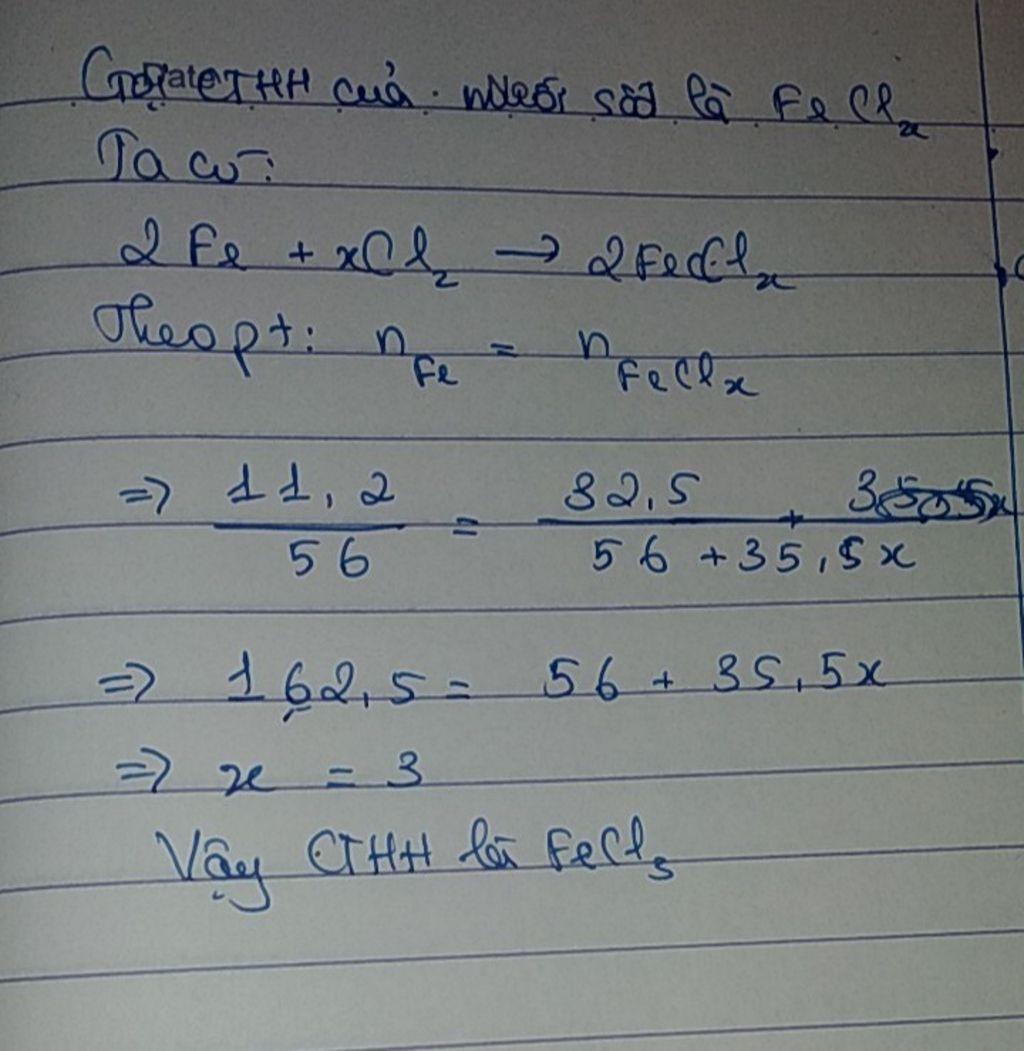 Gọi CTHH của muối sắt là FeClₓ
Ta có:
2Fe + xCl₂ → 2FeClₓ
Theo pt: n_Fe = n_FeClₓ
=> 11,2/56 = 32,5/(56 + 35,5x)
=> 162,5 = 56 + 35,5x
=> x = 3
Vậy CTHH là FeCl₃